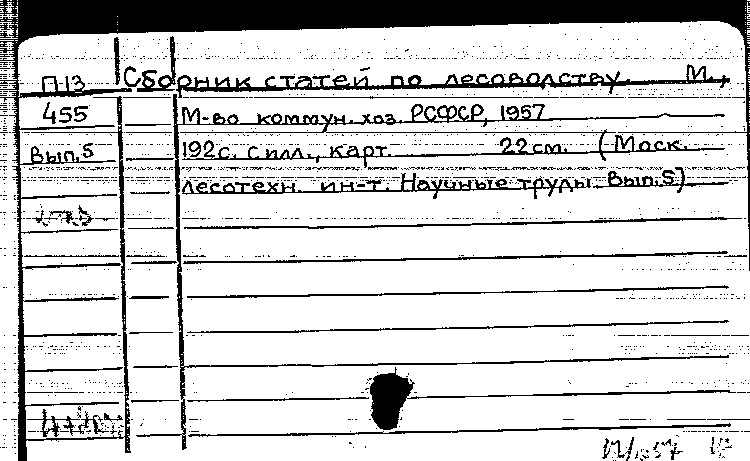 П-13 Сборник статей по лесоводству. М.,
455 М-во коммун. хоз. РСФСР, 1957
Вып.5 192с. с илл., карт. 22см. (Моск.
лесотехн. ин-т. Научные труды. Вып.5)